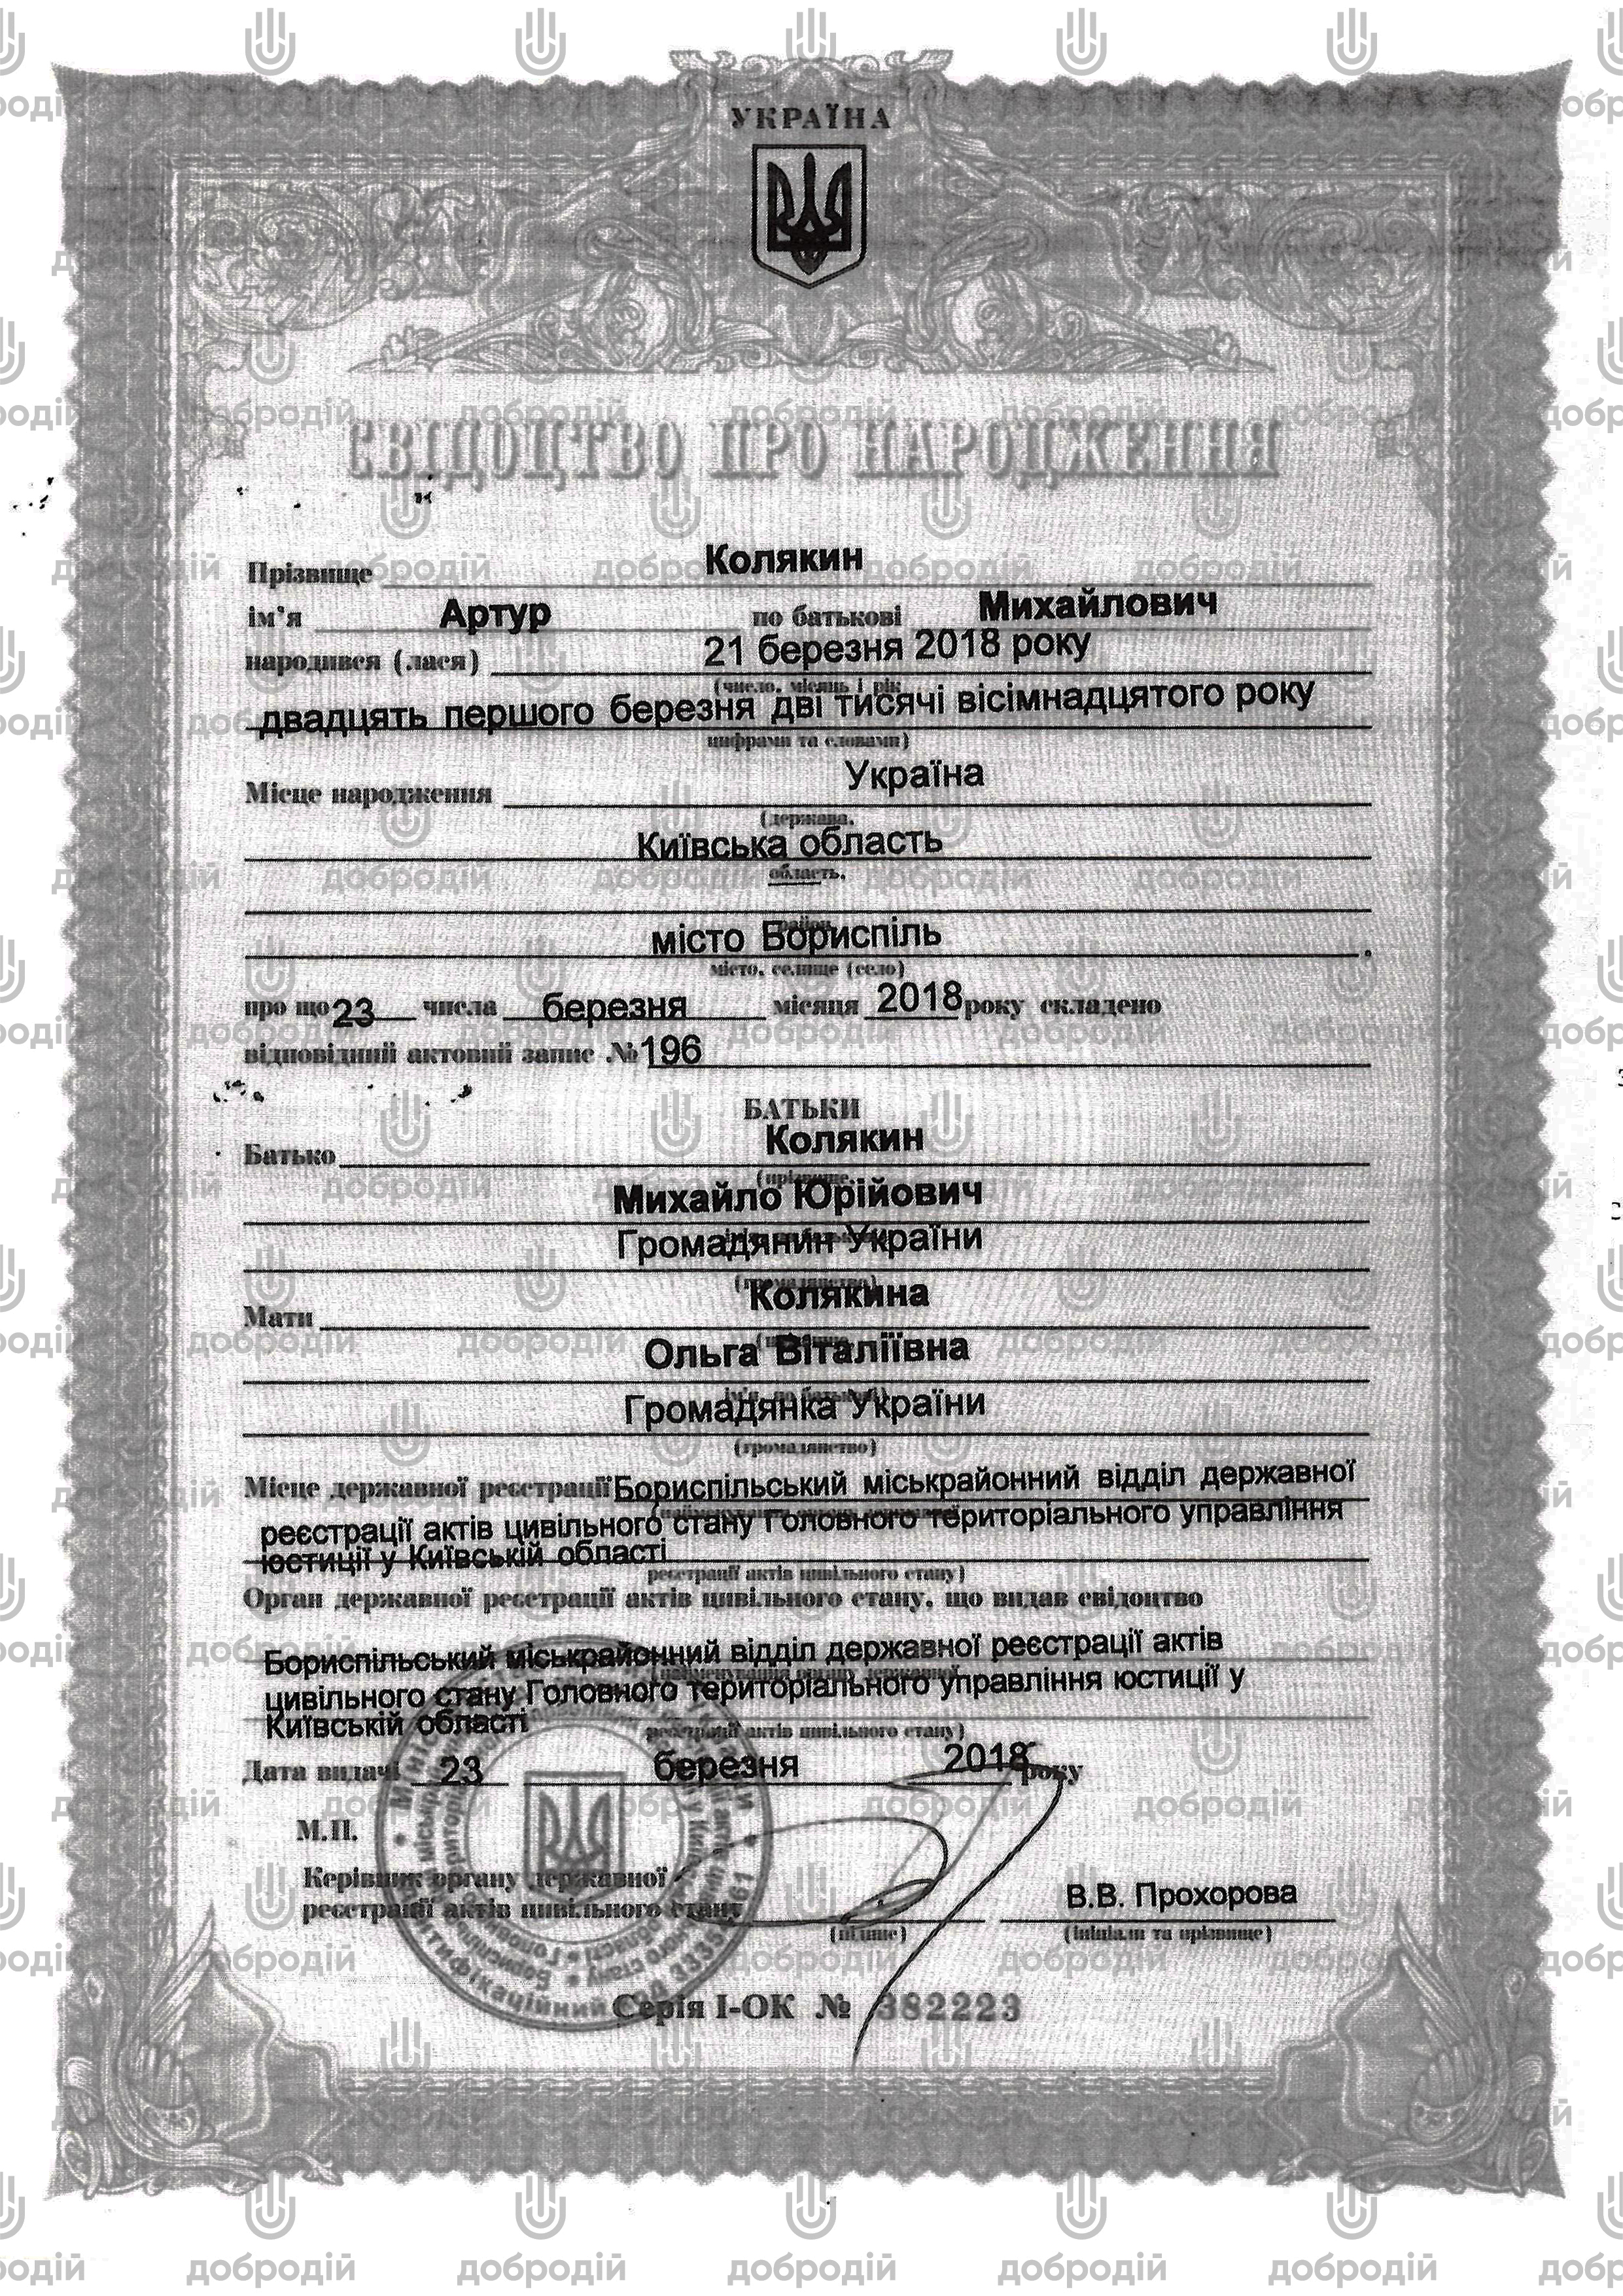 УКРАЇНА
СВІДОЦТВО ПРО НАРОДЖЕННЯ
Прізвище Колякин
ім'я Артур по батькові Михайлович
народився (лася) 21 березня 2018 року
(число, місяць і рік
двадцять першого березня дві тисячі вісімнадцятого року
цифрами та словами)
Місце народження Україна
(держава,
Київська область
область,
район,
місто Бориспіль
місто, селище (село)
про що 23 числа березня місяця 2018 року складено
відповідний актовий запис № 196
БАТЬКИ
Батько Колякин
(прізвище,
Михайло Юрійович
Громадянин України
(громадянство)
Мати Колякина
(прізвище,
Ольга Віталіївна
ім'я, по батькові)
Громадянка України
(громадянство)
Місце державної реєстрації Бориспільський міськрайонний відділ державної
(найменування органу державної
реєстрації актів цивільного стану Головного територіального управління
юстиції у Київській області
реєстрації актів цивільного стану)
Орган державної реєстрації актів цивільного стану, що видав свідоцтво
Бориспільський міськрайонний відділ державної реєстрації актів
(найменування органу державної
цивільного стану Головного територіального управління юстиції у
Київській області
реєстрації актів цивільного стану)
Дата видачі 23 березня 2018 року
М.П.
Керівник органу державної
реєстрації актів цивільного стану
В.В. Прохорова
(підпис) (ініціали та прізвище)
Серія І-ОК № 382223
добродій